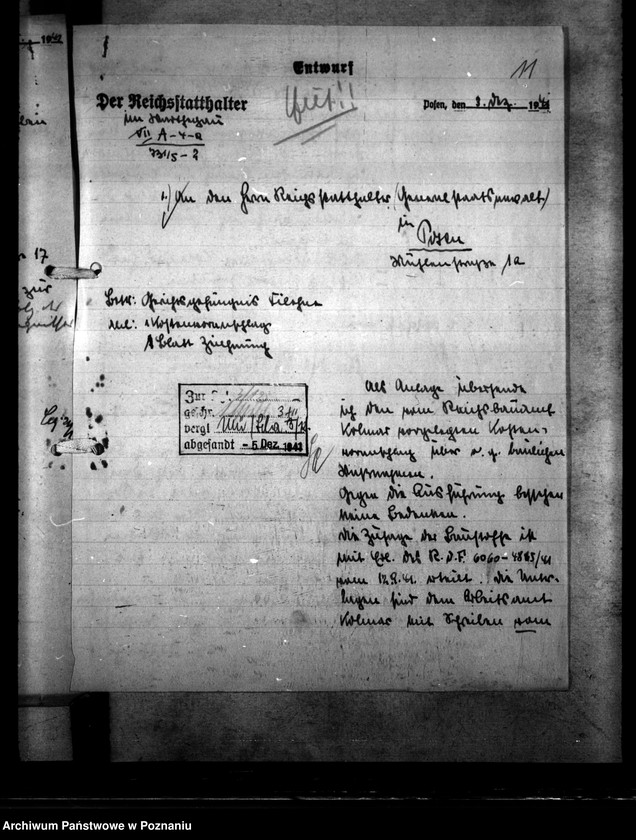 11
Entwurf
Der Reichsstatthalter
im Warthegau
VII A-4-a
Eilt!!
Posen, den 3. Dez. 194
1.) An den Herrn Reichsstatthalter (Generalstaatsanwalt)
in
Posen
Mühlenstraße 1a
Betr: Gerichtsgefängnis Filehne
Anl: 1 Kostenvoranschlag
1 Blatt Zeichnung
Zur
geschr.
vergl
abgesandt - 5. Dez. 194
Als Anlage übersende
ich den vom Reichsbauamt
Kolmar vorgelegten Kosten-
voranschlag über o. g. baulichen
Gegen die Ausführung bestehen
keine Bedenken.
Die Zusage der Baustoffe ist
mit Erl. des R.d.F. 6060-4885/41
vom 17.2.41. erteilt. Die Unter-
lagen sind dem Arbeitsamt
Kolmar mit Schreiben vom
17
zur
Archiwum Państwowe w Poznaniu